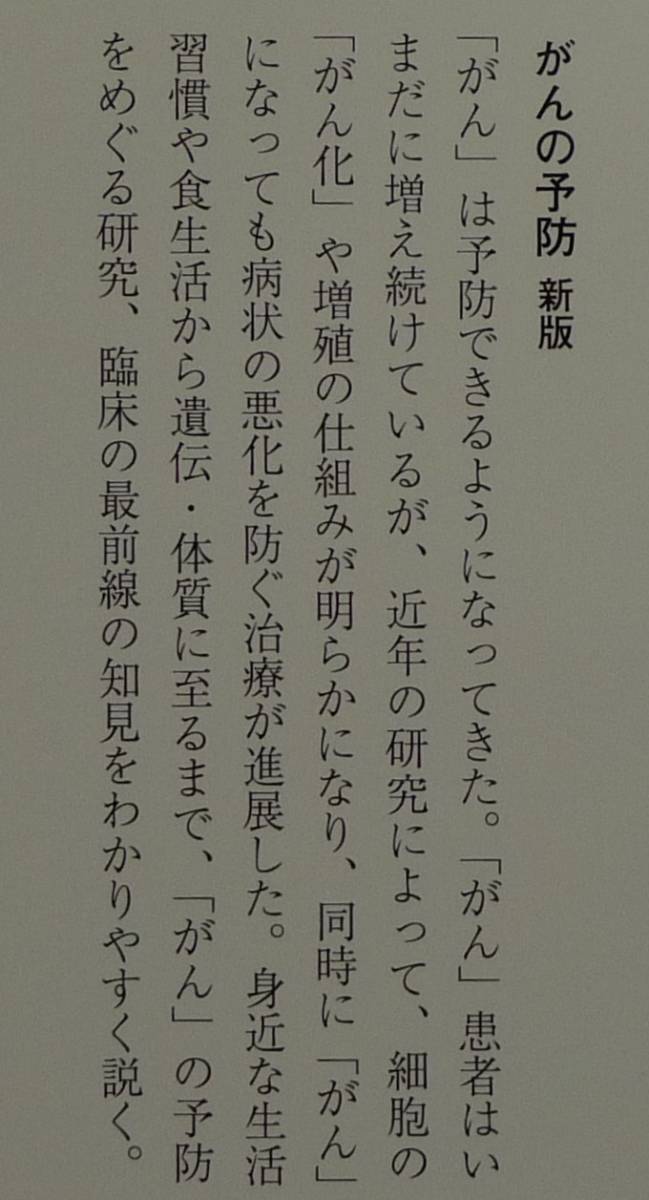 がんの予防 新版
「がん」は予防できるようになってきた。「がん」患者はい
まだに増え続けているが、近年の研究によって、細胞の
「がん化」や増殖の仕組みが明らかになり、同時に「がん」
になっても病状の悪化を防ぐ治療が進展した。身近な生活
習慣や食生活から遺伝・体質に至るまで、「がん」の予防
をめぐる研究、臨床の最前線の知見をわかりやすく説く。